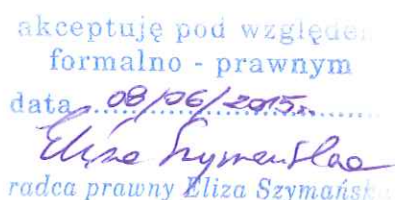 akceptuję pod względem
formalno - prawnym
data 08/06/2015r.
Eliza Szymańska
radca prawny Eliza Szymańska